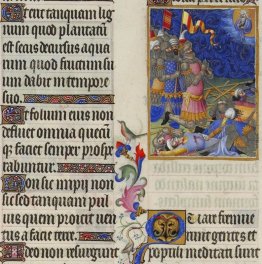 Et erit tanquam lig
num quod plantatū
est secus decursus aquā
rum quod fructum su
um dabit in tempore
suo.
Et folium eius non
defluet omnia quecū
qȝ faciet semper prospe
rabuntur.
Non sic impii non
sic sed tanquam pul
uis quem proicit uen
tus a facie terre.
Ideo non resurgunt
Quare fremue
runt gentes et
populi meditati sunt